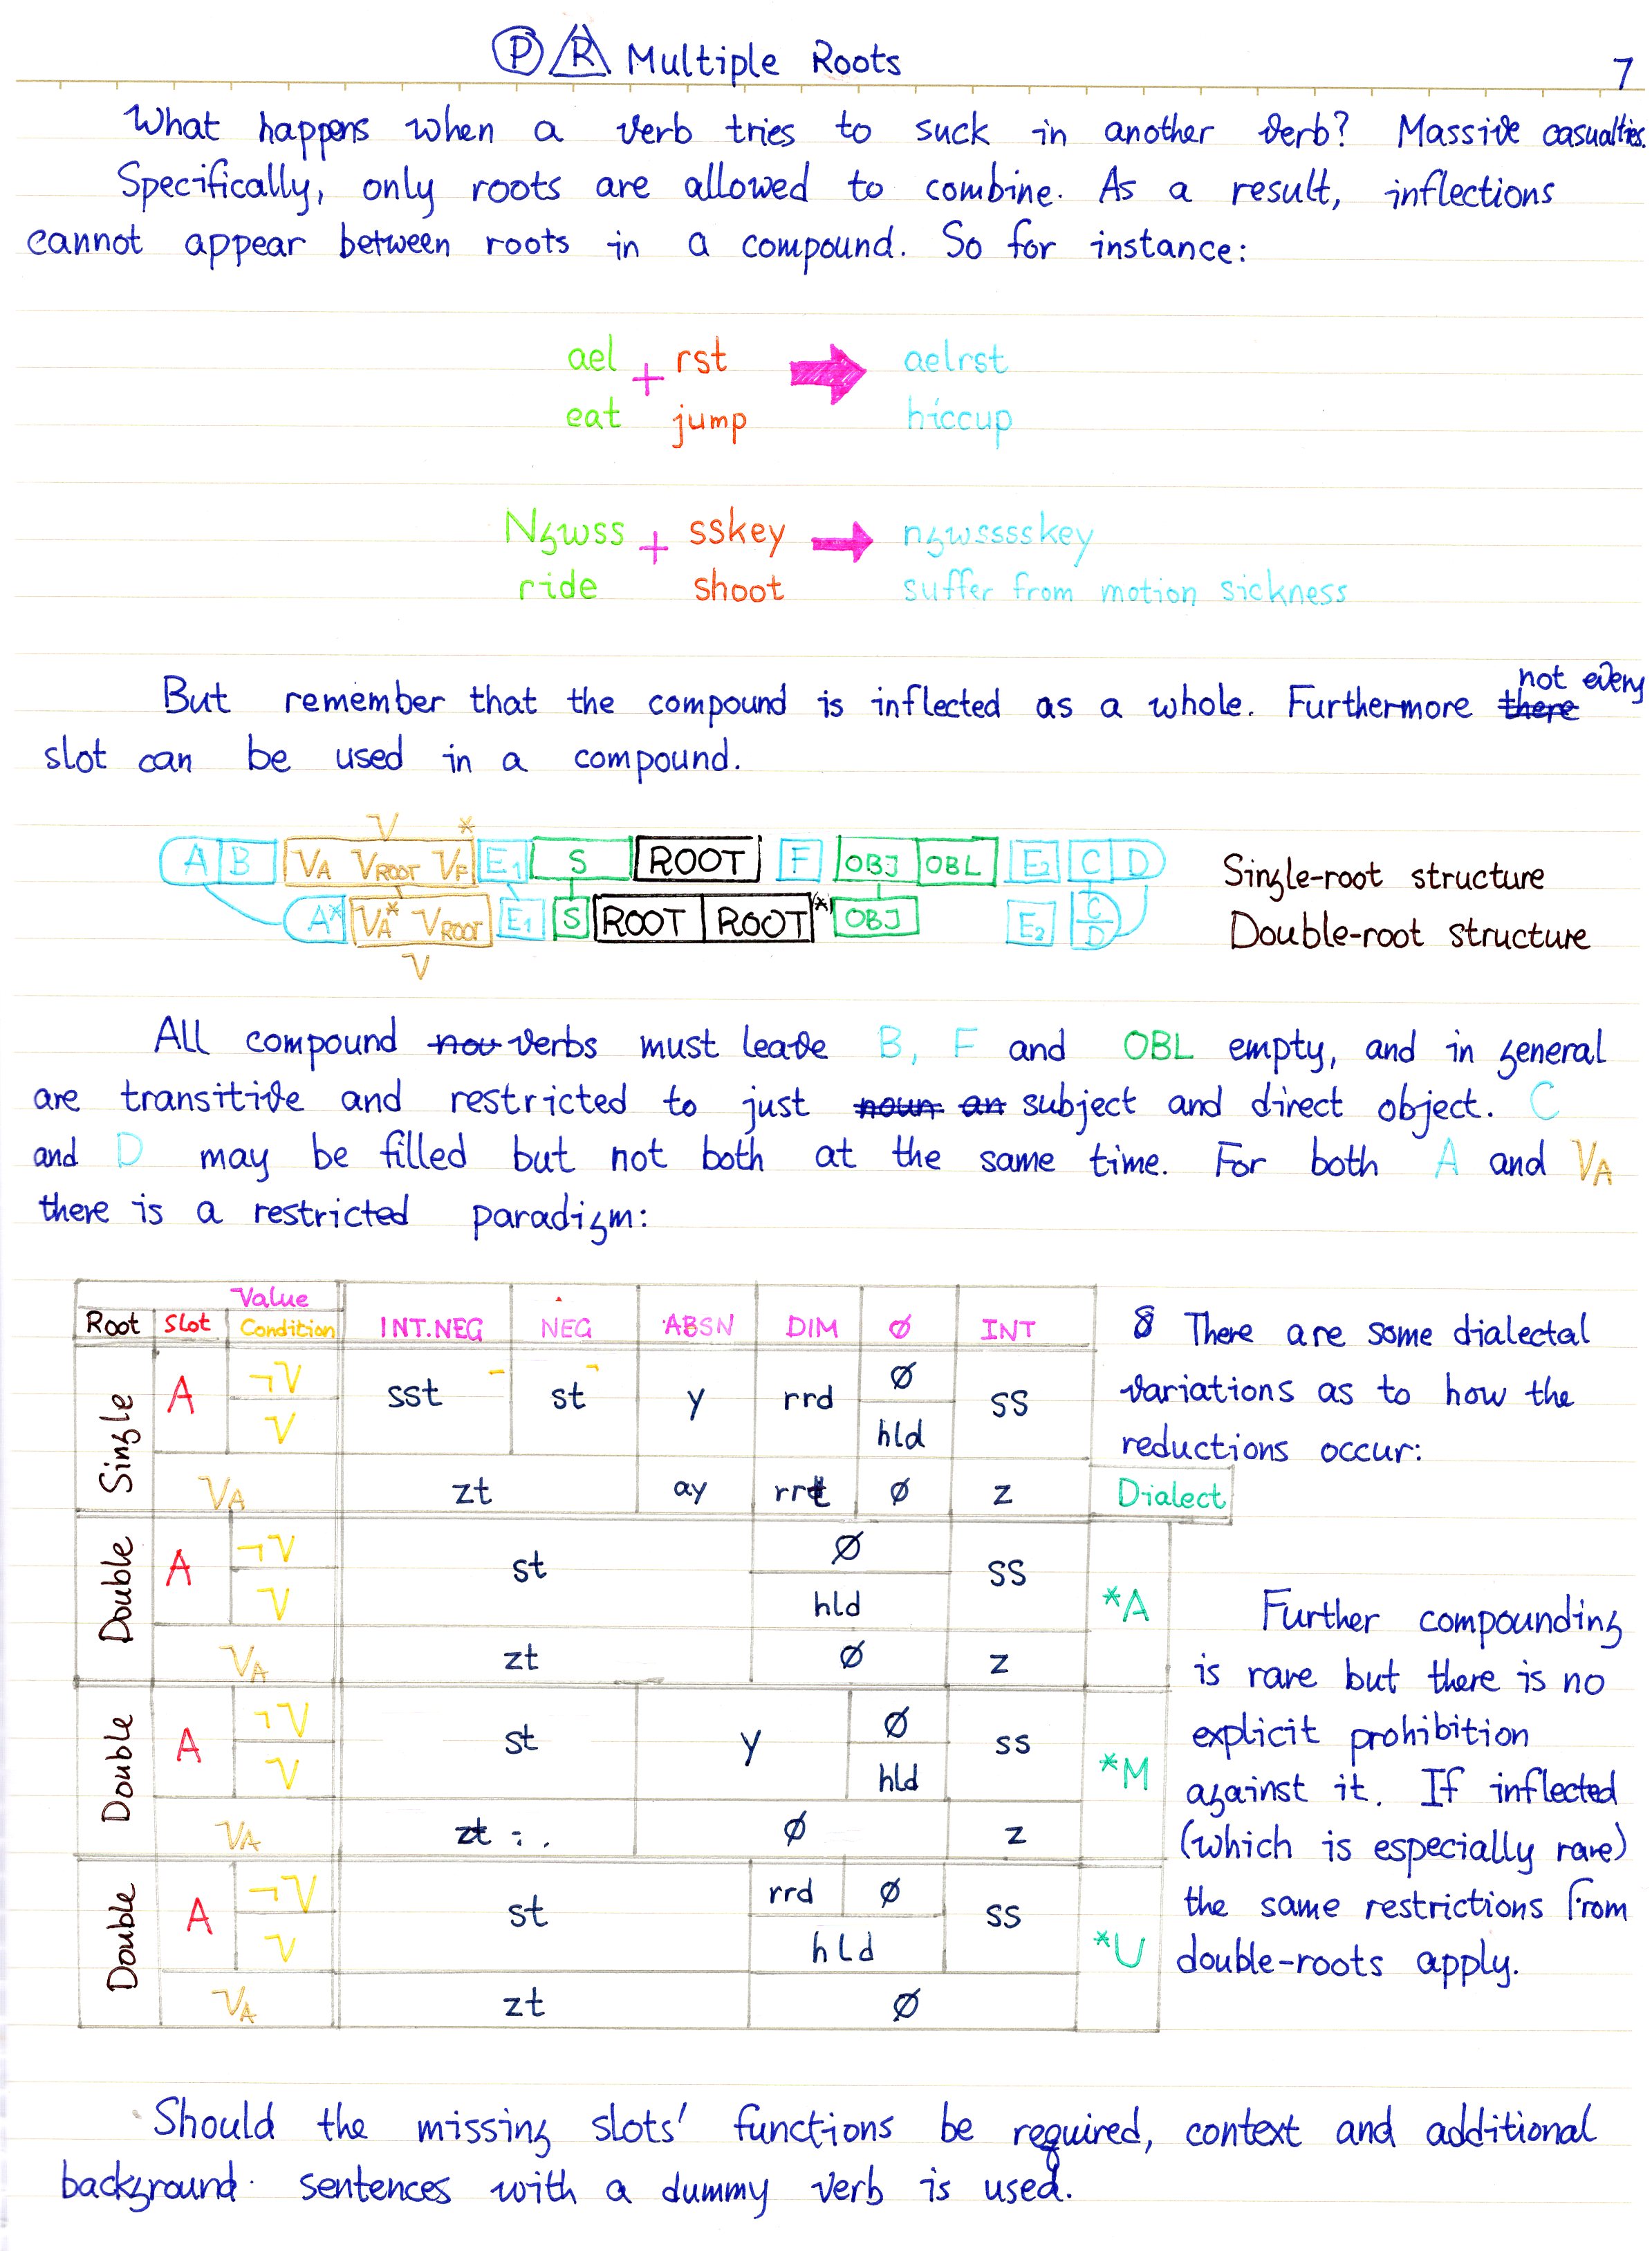 P R Multiple Roots 7
What happens when a verb tries to suck in another verb? Massive casualties.
Specifically, only roots are allowed to combine. As a result, inflections
cannot appear between roots in a compound. So for instance:
ael + rst aelrst
eat jump hiccup
Ngwss + sskey ngwsssskey
ride shoot suffer from motion sickness
But remember that the compound is inflected as a whole. Furthermore there not every
slot can be used in a compound.
V *
A B VA VROOT VF E1 S ROOT F OBJ OBL E2 C D Single-root structure
A* VA* VROOT E1 S ROOT ROOT (*) OBJ E2 C D Double-root structure
V
All compound nou verbs must leave B, F and OBL empty, and in general
are transitive and restricted to just noun an subject and direct object. C
and D may be filled but not both at the same time. For both A and VA
there is a restricted paradigm:
Value
Root Slot Condition INT.NEG NEG ABSN DIM ∅ INT
Single A ¬V sst st y rrd ∅ ss
V hld
VA zt ay rrt ∅ z Dialect
Double A ¬V st ∅ ss *A
V hld
VA zt ∅ z
Double A ¬V st y ∅ ss *M
V hld
VA zt ∅ z
Double A ¬V st rrd ∅ ss *U
V hld
VA zt ∅
8 There are some dialectal
variations as to how the
reductions occur:
Further compounding
is rare but there is no
explicit prohibition
against it. If inflected
(which is especially rare)
the same restrictions from
double-roots apply.
Should the missing slots' functions be required, context and additional
background sentences with a dummy verb is used.